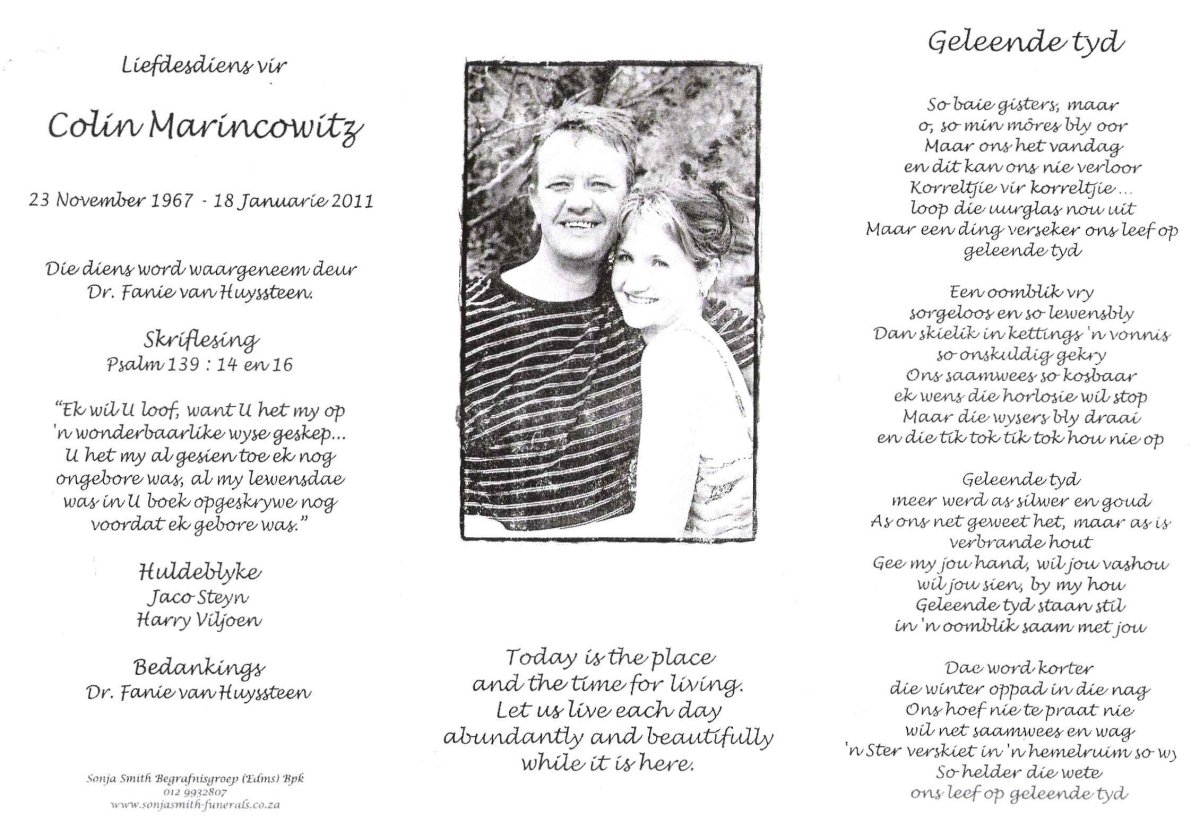 Liefdesdiens vir
Colin Marincowitz
23 November 1967 - 18 Januarie 2011
Die diens word waargeneem deur
Dr. Fanie van Huyssteen.
Skriflesing
Psalm 139 : 14 en 16
“Ek wil U loof, want U het my op
'n wonderbaarlike wyse geskep...
U het my al gesien toe ek nog
ongebore was, al my lewensdae
was in U boek opgeskrywe nog
voordat ek gebore was.”
Huldeblyke
Jaco Steyn
Harry Viljoen
Bedankings
Dr. Fanie van Huyssteen
Sonja Smith Begrafnisgroep (Edms) Bpk
012 9932807
www.sonjasmith-funerals.co.za
Today is the place
and the time for living.
Let us live each day
abundantly and beautifully
while it is here.
Geleende tyd
So baie gisters, maar
o, so min môres bly oor
Maar ons het vandag
en dit kan ons nie verloor
Korreltjie vir korreltjie ...
loop die uurglas nou uit
Maar een ding verseker ons leef op
geleende tyd
Een oomblik vry
sorgeloos en so lewensbly
Dan skielik in kettings 'n vonnis
so onskuldig gekry
Ons saamwees so kosbaar
ek wens die horlosie wil stop
Maar die wysers bly draai
en die tik tok tik tok hou nie op
Geleende tyd
meer werd as silwer en goud
As ons net geweet het, maar as is
verbrande hout
Gee my jou hand, wil jou vashou
wil jou sien, by my hou
Geleende tyd staan stil
in 'n oomblik saam met jou
Dae word korter
die winter oppad in die nag
Ons hoef nie te praat nie
wil net saamwees en wag
'n Ster verskiet in 'n hemelruim so wy
So helder die wete
ons leef op geleende tyd